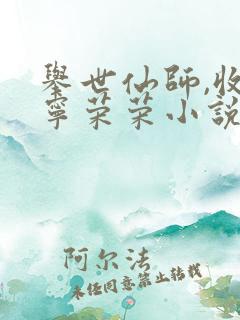 舉世仙師,收
寧荣荣小說
阿尔法
未经同意禁止转载